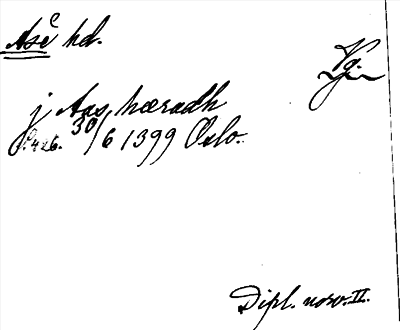 Åse hd.
Vg.
j Aas hæradh
S. 426. 30/6 1399 Oslo.
Dipl. norv. II.